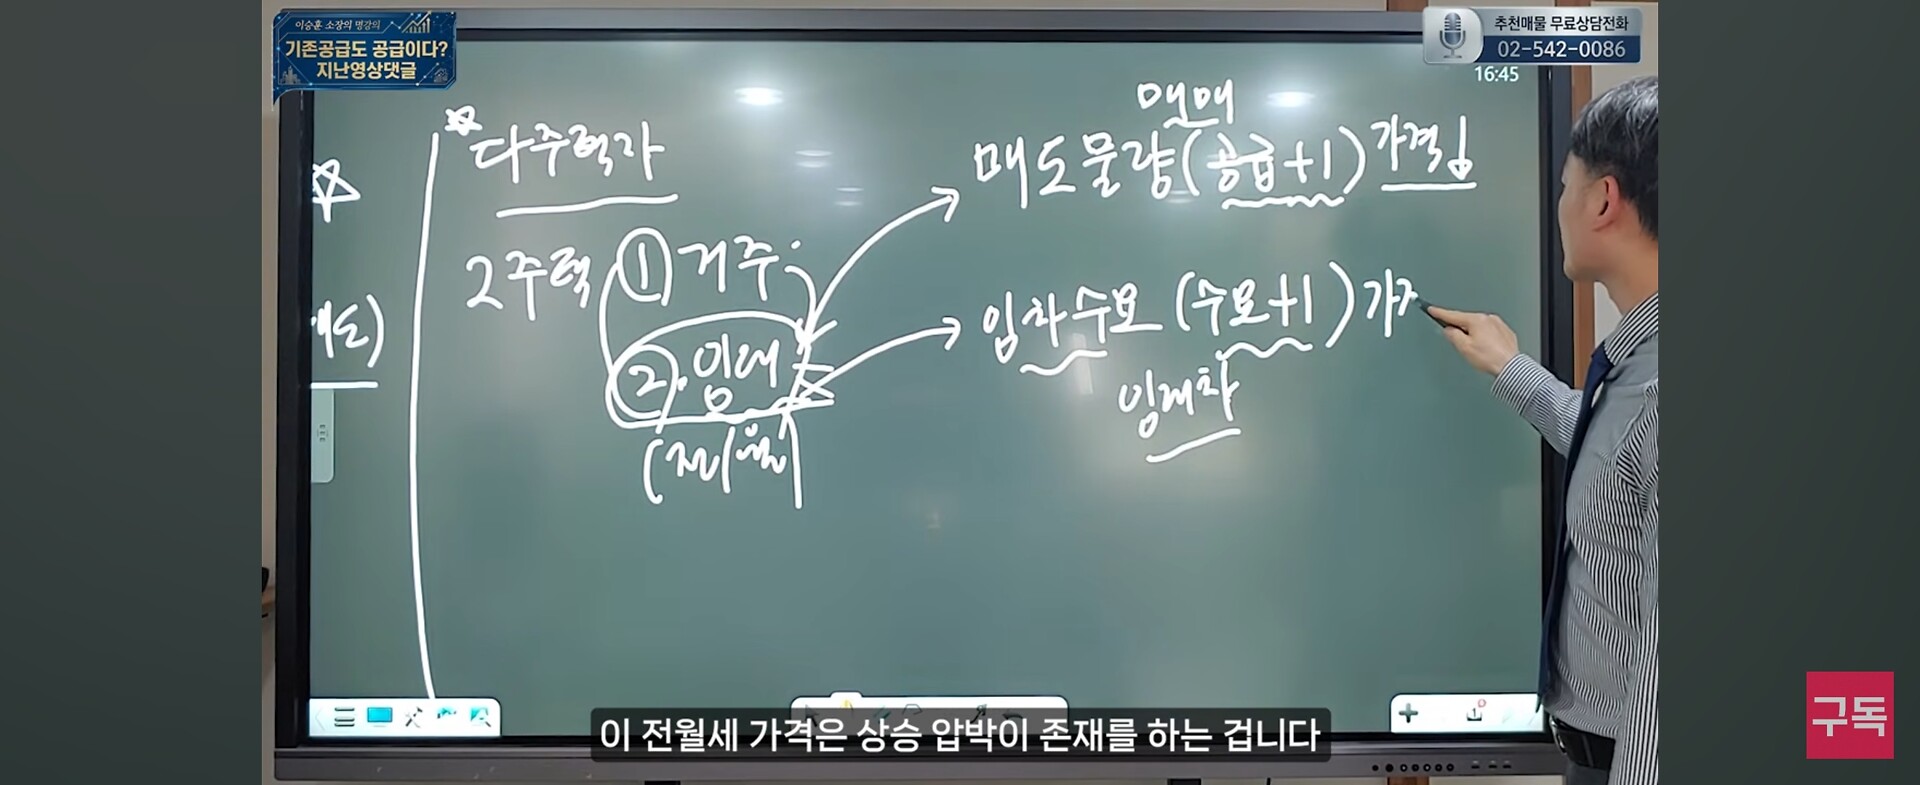 이승훈 소장의 명강의
기존공급도 공급이다?
지난영상댓글
추천매물 무료상담전화
02-542-0086
16:45
다주택자
2주택 ① 거주
② 임대
(전/월)
매매
매도물량(공급+1) 가격↓
임차수요 (수요+1) 가
임대차
이 전월세 가격은 상승 압박이 존재를 하는 겁니다
구독